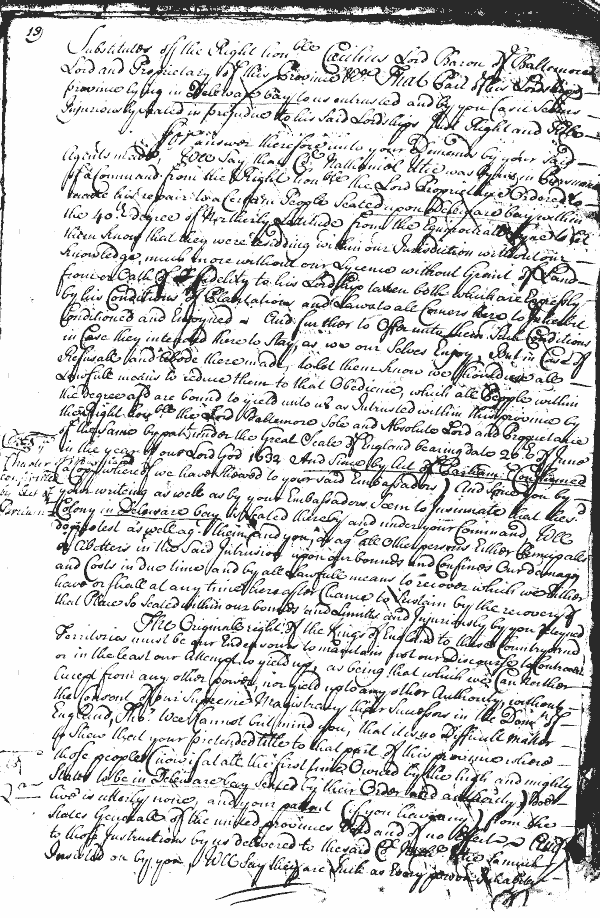 19
Substitutes off the Right hon ble Cæcilius Lord Baron of Baltemore
Lord and Proprietary of this Province &c. That part of his Lordships
province lying in Delewar bay to us entrusted and by you
Injuriously seated in prejudice to his Said Lordships Just Right and
For answer therefore unto your Demands by your said
Agents made, Wee Say that Nathaniel Utie was
of a Command from the Right hon ble the Lord Proprietary Ordered to
make his repair to a certain People Seated upon Delaware bay within
the 40th degree of Northerly Latitude from the Equinoctiall Lyne to Let
them know that they were residding within our Jurisdiction without our
knowledge, much more without our Lycence without Grant of Land
from or Oath of fidelity to his Lordship taken both which are Expressly
by his Conditions of Plantation and Law to all Comers here to Inhabit
Conditioned and Enjoyned. And further to Offer unto them Such Conditions
in Case they intended here to Stay, as we our Selves Enjoy, But in Case of
Refusall and abode there made, to let them know we should use all
Lawfull means to reduce them to that Obedience, which all People within
the degree are bound to yield unto us as Intrusted within this province by
the Right hon ble the Lord Baltemore Sole and Absolute Lord and Proprietarie
of the Same by patt. under the Great Seale of England bearing date 20 of June
in the year of our Lord God 1632 And Since by Act of Parliam. Confirmed
(a Copy whereof we have shewed to your said Embassadors) And Since you by
your writeing as well as by your Embassadors seem to insinuate that this
Colony in Delaware bay is seated thereby and under your Command, Wee
do protest as well ag. them and you, as ag. all other persons either Principals
or Abettors in the Said Intrusion upon our bounds and Confines Our damage
and Costs in due time and by all Lawfull means to recover which we either
have or shall at any time hereafter Chance to Sustain by the recovery of
that Place So seated within our bounds and Limits and Injuriously by you
The Originall right of the Kings of England to these Countrys and
Territories must be our Endeavour to maintain not our Discourse to Controvert
or in the least our attempt to yield up, as being that which we Can neither
Except from any other power, nor yield up to any other Authority without
the consent of our Supreme Magistracy their Successors in the Dom. of
England, Tho' Wee Cannot but mind you, that it is no difficult matter
to Shew that your pretended title to that part of this province where
those people (now if at all the first time Owned by the high and mighty
States to be in Delaware bay Seated by their Order and authority) doe
live is utterly none, and your patent (if you have any) from the
States Generale of the united provinces Void and of no Effect. And
to those Instructions by us delivered to the said
Insisted on by you, Wee Say they are Such as Every person Inhabits